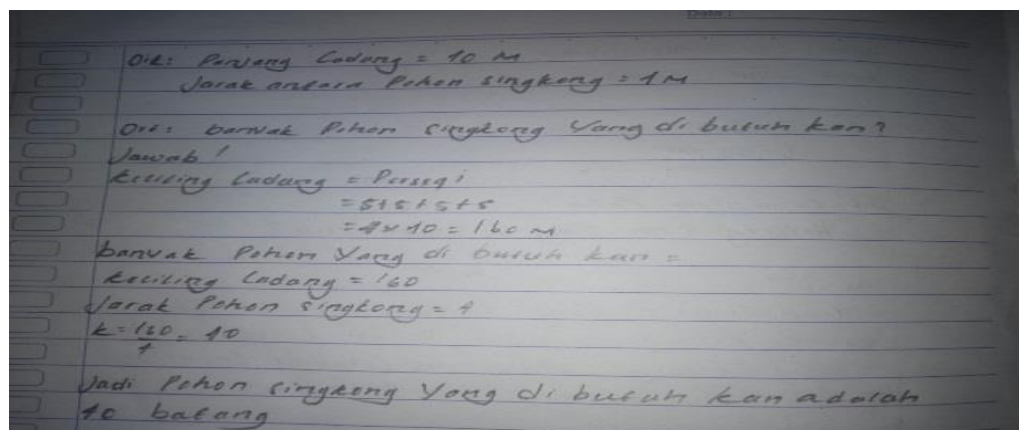 Dik: Panjang Ladang = 40 M
Jarak antara Pohon singkong = 4 M
Dit: banyak Pohon singkong Yang di butuh kan?
Jawab!
keliling Ladang = Persegi
= s+s+s+s
= 4x40 = 160 M
banyak Pohon Yang di butuh kan =
keliling Ladang = 160
Jarak Pohon singkong = 4
k = 160/4 = 40
Jadi Pohon singkong Yang di butuh kan adalah
40 batang